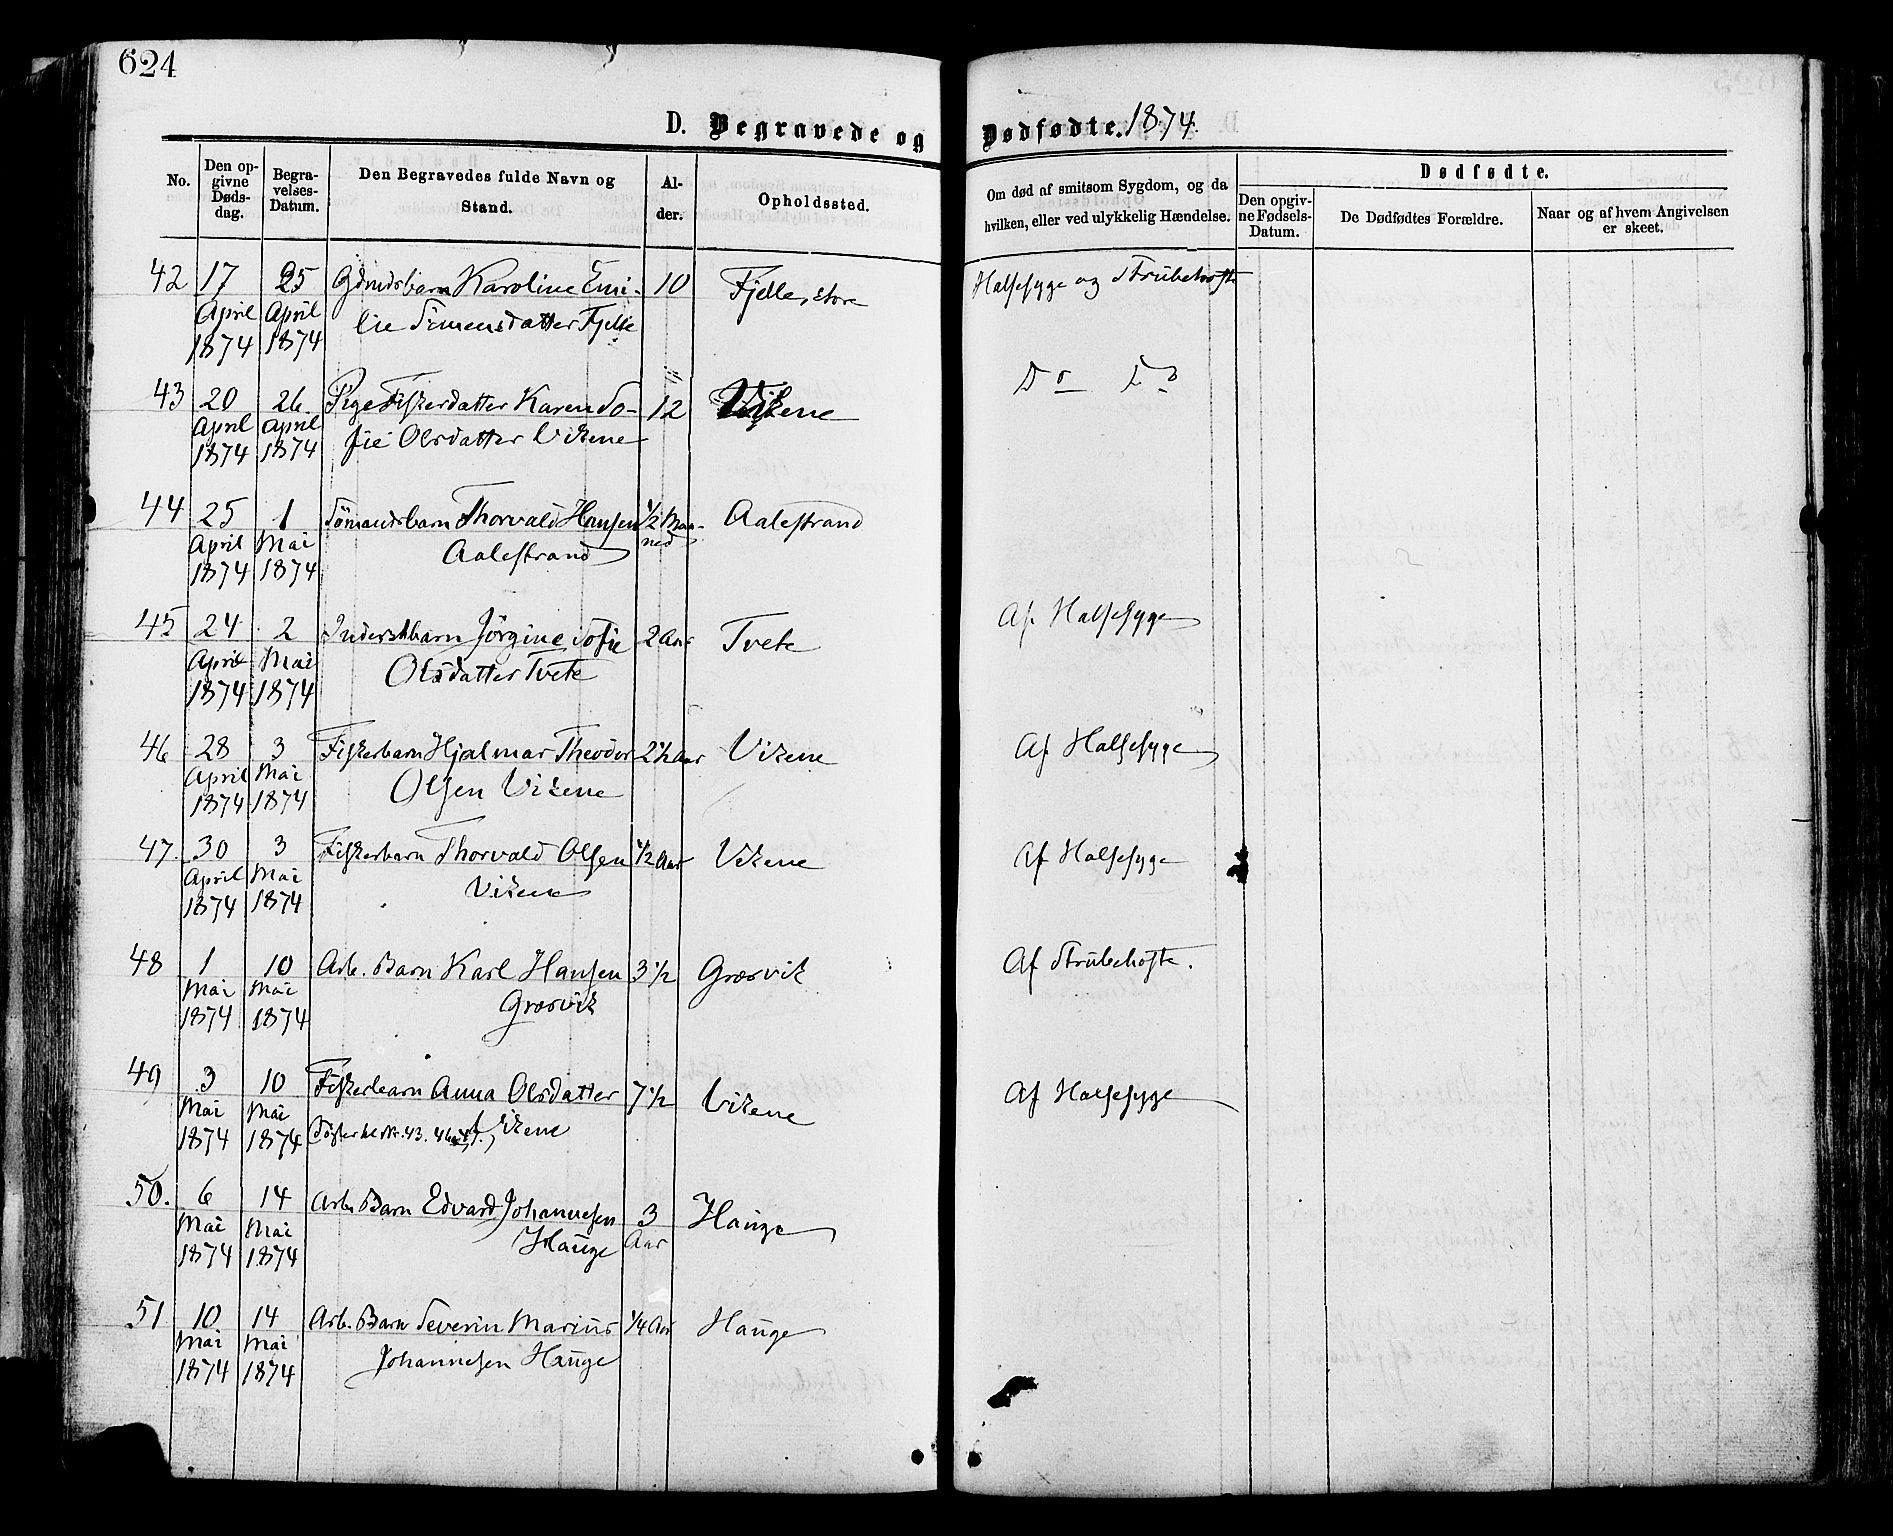 624
D. Begravede og Dødfødte. 1874.
No.
Den opgivne Dødsdag.
Begravelses-Datum.
Den Begravedes fulde Navn og Stand.
Alder.
Opholdssted.
Om død af smitsom Sygdom, og da hvilken, eller ved ulykkelig Hændelse.
Dødfødte.
Den opgivne Fødsels-Datum.
De Dødfødtes Forældre.
Naar og af hvem Angivelsen er skeet.
42 17 25 Gdmdsbarn Karoline Emi- 10 Fjelle, store Halsesyge og Strubehoste
April April lie Simensdatter Fjelle
1874 1874
43 20 26 Pige Fiskerdatter Karen So- 12 Vikene Do Do
April April fie Olsdatter Vikene
1874 1874
44 25 1 Sömandsbarn Thorvald Hansen 1/2 Maa- Aalestrand
April Mai Aalestrand ned
1874 1874
45 24 2 Inderstbarn Jörgine Sofie 2 Aar Tvete Af Halsesyge
April Mai Olsdatter Tvete
1874 1874
46 28 3 Fiskerbarn Hjalmar Theodor 2 1/2 Aar Vikene Af Halsesyge
April Mai Olsen Vikene
1874 1874
47. 30 3 Fiskerbarn Thorvald Olsen 1/2 Aar Vikene Af Halsesyge
April Mai Vikene
1874 1874
48 1 10 Arb. Barn Karl Hansen 3 1/2 Græsvik Af Strubehoste.
Mai Mai Græsvik
1874 1874
49 3 10 Fiskerbarn Anna Olsdatter 7 1/2 Vikene Af Halsesyge
Mai Mai
1874 1874 Söster til Nr. 43. 46 47. Vikene
50. 6 14 Arb. Barn Edvard Johannesen 3 Hauge
Mai Mai Hauge Aar
1874 1874
51 10 14 Arb. Barn Severin Marius 1/4 Aar Hauge
Mai Mai Johannesen Hauge
1874 1874